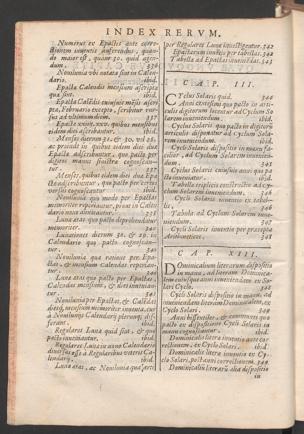 INDEX RERUM.
Numerus ex Epactis ante corre-
ctionem inventis auferendus, quan-
do maior est, quam 30. quid agen-
dum. 336
Novilunia ubi notata sint in Calen-
dario. ibid.
Epacta Calendis mensium ascripta
qua sint. ibid.
Epacta Calendis cuiusque mensis
pta, Februario excepto, scribitur
sus ad ultimum diem. 337
Epacta xxiiii. xxv. quibus mensibus
eidem diei ascribantur. ibid.
Menses dierum 31. & 30. vel 28.
ac proinde in quibus eidem diei duæ
Epactæ ascribuntur, quo pacto in
digitis manus sinistræ cognoscan-
tur. ibid.
Menses, quibus eidem diei duæ Epa-
ctæ adscribuntur, quo pacto per ver-
sus cognoscantur. ibid.
Novilunia quo modo per Epactas
memoriter reperiantur, prout in Calen-
dario nova sint. 338
Luna ætas quo pacto deprehendatur
memoriter. 340
Lunationes dierum 30. & 29. in
Calendario quo pacto cognoscan-
tur. 340
Novilunia qua ratione per Epa-
ctas, & mensium Calendas reperian-
tur. ibid.
Luna ætas quo pacto per Epactas,
Calendas mensium, & dies inveniat-
ur. 341
Novilunia per Epactas, & Calendas
diversi, necessum memoriter, ut cum
Novilunijs Calendarij plerunque
ferant. ibid.
Regulares Luna quid sint, & quo
pacto inveniantur. ibid.
Regulares Luna in anno Calendario
diversi esse à Regularibus veteris Ca-
lendarij. ibid.
Luna ætas, ac Novilunia quo pacto
per Regulares Lunæ investigentur. 342
Epactarum inventio per tabellas. 342
Tabella ad Epactas inveniendas. 343
CAP. III.
Cyclus Solaris quid. 344
Anni extensio quo pacto in arti-
culis digitorum inveniatur ad Cyclum So-
larem inveniendum. ibid.
Cyclus Solaris quo pacto in digitorum
articulis disponatur ad Cyclum Sola-
rem inveniendum. ibid.
Cycli Solaris dispositio in manu
ad Cyclum Solarem inveniendum.
ibid.
Cyclus Solaris cuiusque anni quo pa-
cto inveniatur. ibid.
Tabula triplicis extensionis ad cy-
clum Solarem inveniendum. ibid.
Cycli Solaris inventio ex tabel-
lis. ibid.
Tabula ad Cyclum Solarem inve-
niendum. ibid.
Cycli Solaris inventio per præcepta
Arithmetices. 345
CAP. XIII.
Dominicalium literarum dispositio
in manu, ad literam Dominica-
lem cuiusque anni inveniendam ex So-
lari Cyclo. ibid.
Cyclo Solaris dispositio in manu, ad
inveniendam literam Dominicalem, ex
Cyclo Solari. ibid.
Anni bissextiles, & communes quo
pacto ex dispositione Cycli Solaris in
manu cognoscantur. ibid.
Dominicalis litera inventio ante cor-
rectionem, ex Cyclo Solari. ibid.
Dominicalis litera inventio ex Cy-
clo Solari, post anni correctionem. ibid.
Dominicalium literarum alia dispositio
in